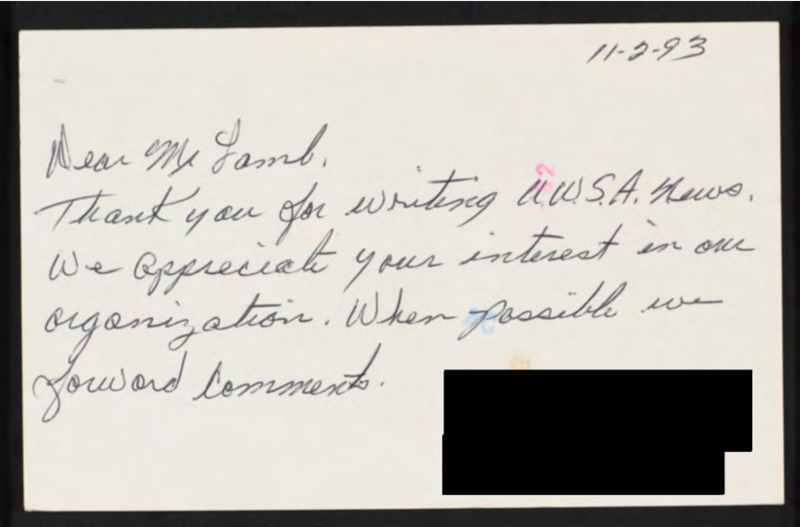 11-2-93
Dear Mr Lamb.
Thank you for writing U.W.S.A. News.
We appreciate your interest in our
organization. When possible we
forward comments.